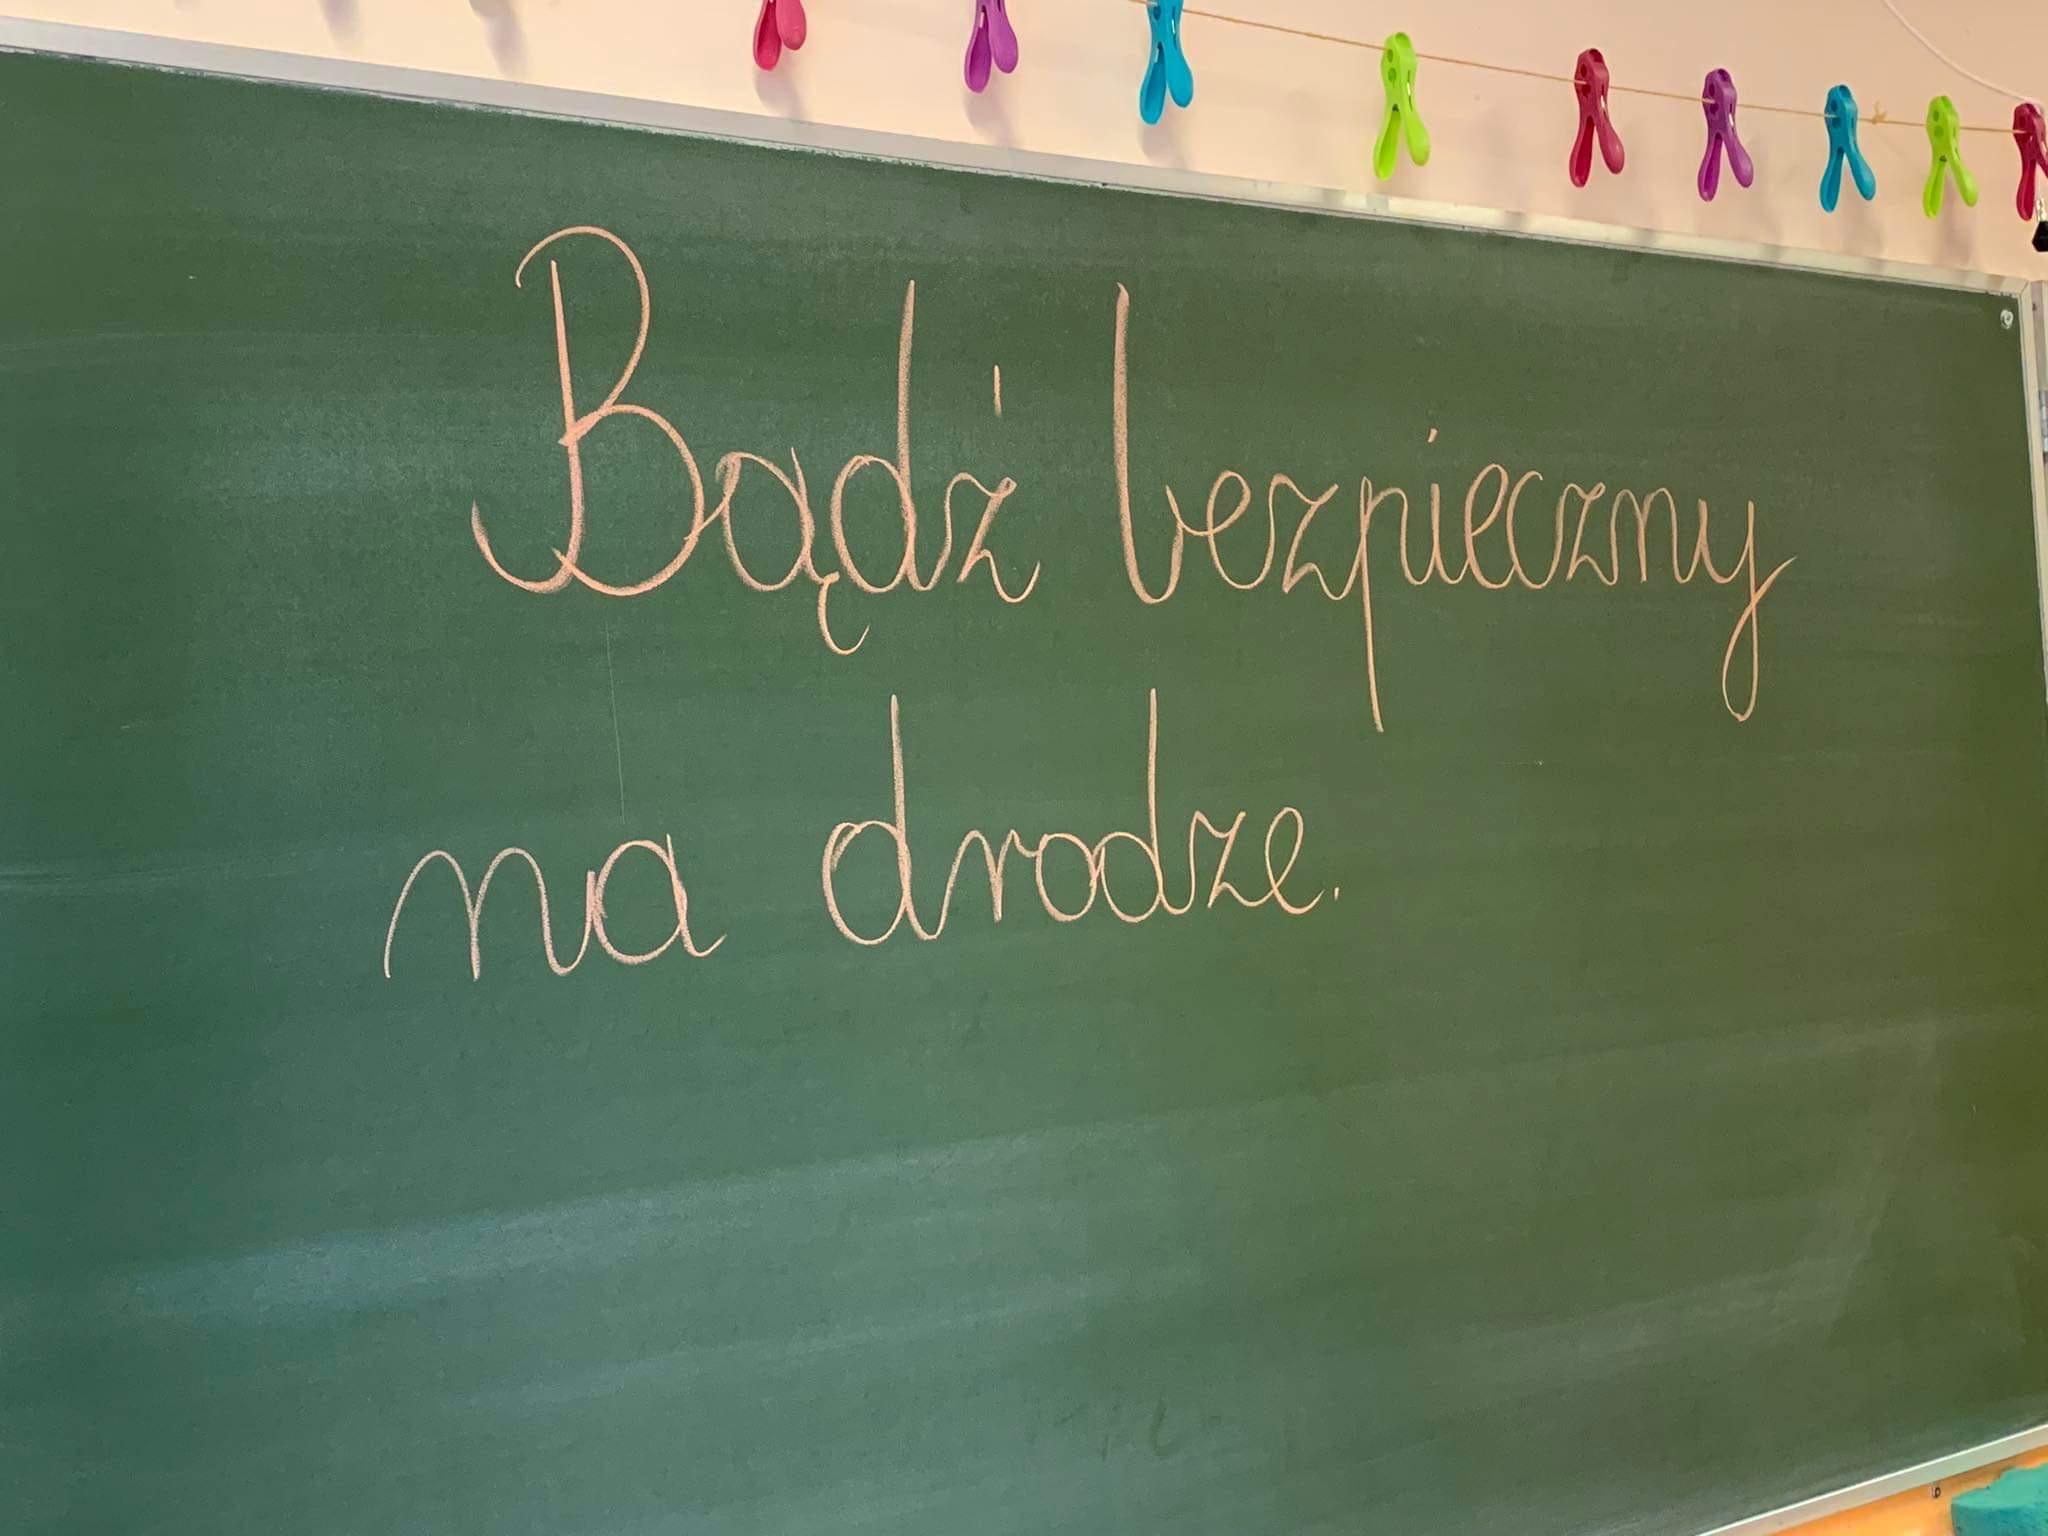 Bądź bezpieczny
na drodze.